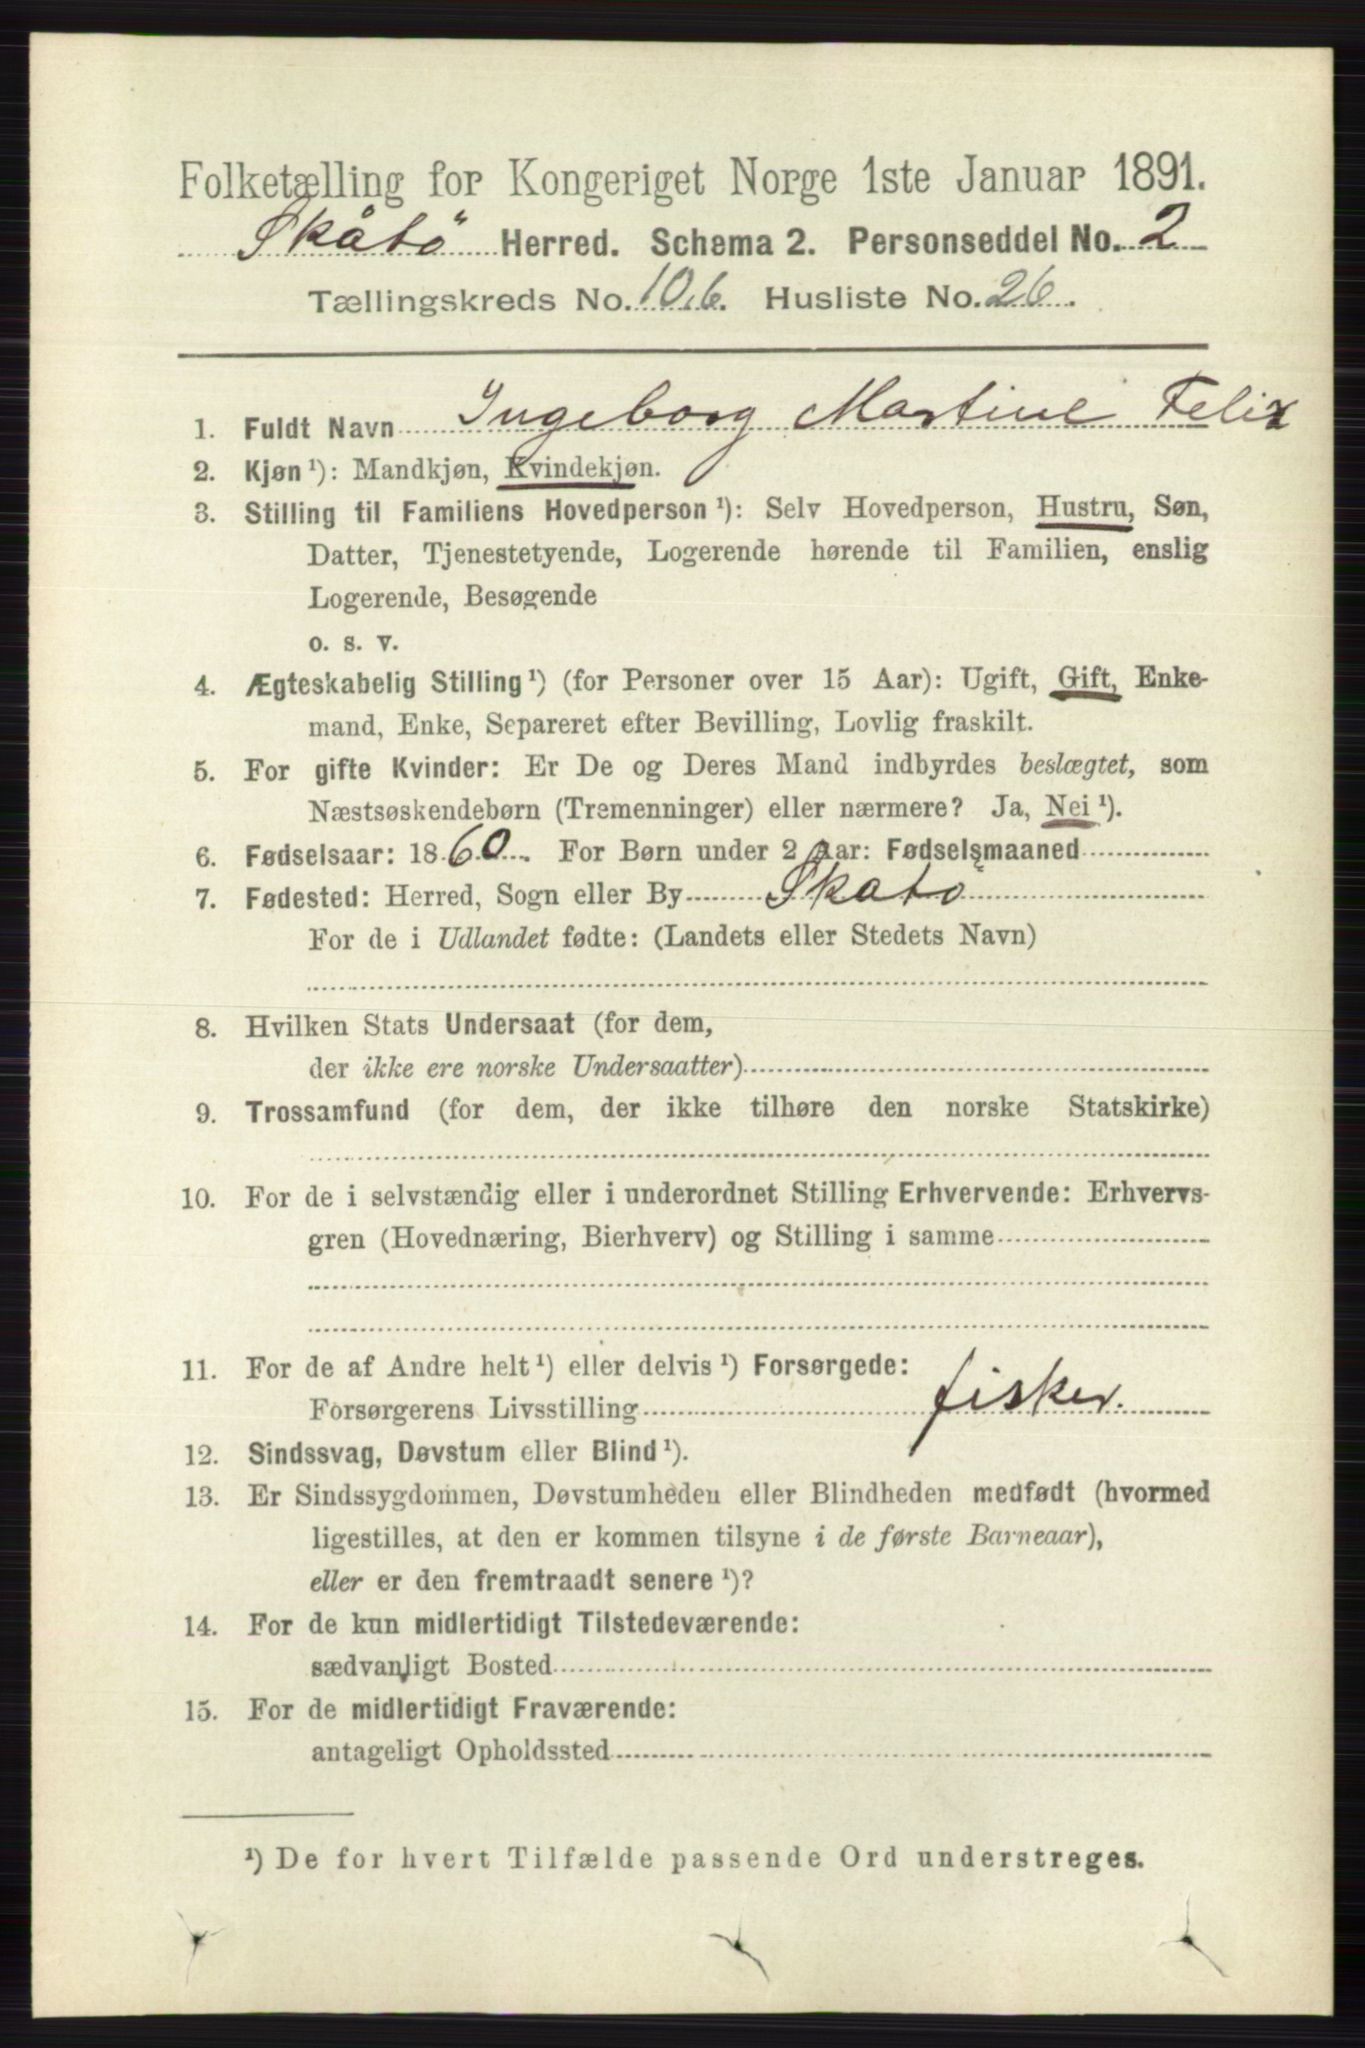 Folketælling for Kongeriget Norge 1ste Januar 1891.
Skåtö Herred. Schema 2. Personseddel No. 2
Tællingskreds No. 10.6. Husliste No. 26.
1. Fuldt Navn Ingeborg Martine Felix
2. Kjøn ¹): Mandkjøn, Kvindekjøn.
3. Stilling til Familiens Hovedperson ¹): Selv Hovedperson, Hustru, Søn,
Datter, Tjenestetyende, Logerende hørende til Familien, enslig
Logerende, Besøgende
o. s. v.
4. Ægteskabelig Stilling ¹) (for Personer over 15 Aar): Ugift, Gift, Enke-
mand, Enke, Separeret efter Bevilling, Lovlig fraskilt.
5. For gifte Kvinder: Er De og Deres Mand indbyrdes beslægtet, som
Næstsøskendebørn (Tremenninger) eller nærmere? Ja, Nei ¹).
6. Fødselsaar: 1860. For Børn under 2 Aar: Fødselsmaaned
7. Fødested: Herred, Sogn eller By Skåtö
For de i Udlandet fødte: (Landets eller Stedets Navn)
8. Hvilken Stats Undersaat (for dem,
der ikke ere norske Undersaatter)
9. Trossamfund (for dem, der ikke tilhøre den norske Statskirke)
10. For de i selvstændig eller i underordnet Stilling Erhvervende: Erhvervs-
gren (Hovednæring, Bierhverv) og Stilling i samme
11. For de af Andre helt ¹) eller delvis ¹) Forsørgede:
Forsørgerens Livsstilling fisker.
12. Sindssvag, Døvstum eller Blind ¹).
13. Er Sindssygdommen, Døvstumheden eller Blindheden medfødt (hvormed
ligestilles, at den er kommen tilsyne i de første Barneaar),
eller er den fremtraadt senere ¹)?
14. For de kun midlertidigt Tilstedeværende:
sædvanligt Bosted
15. For de midlertidigt Fraværende:
antageligt Opholdssted
¹) De for hvert Tilfælde passende Ord understreges.